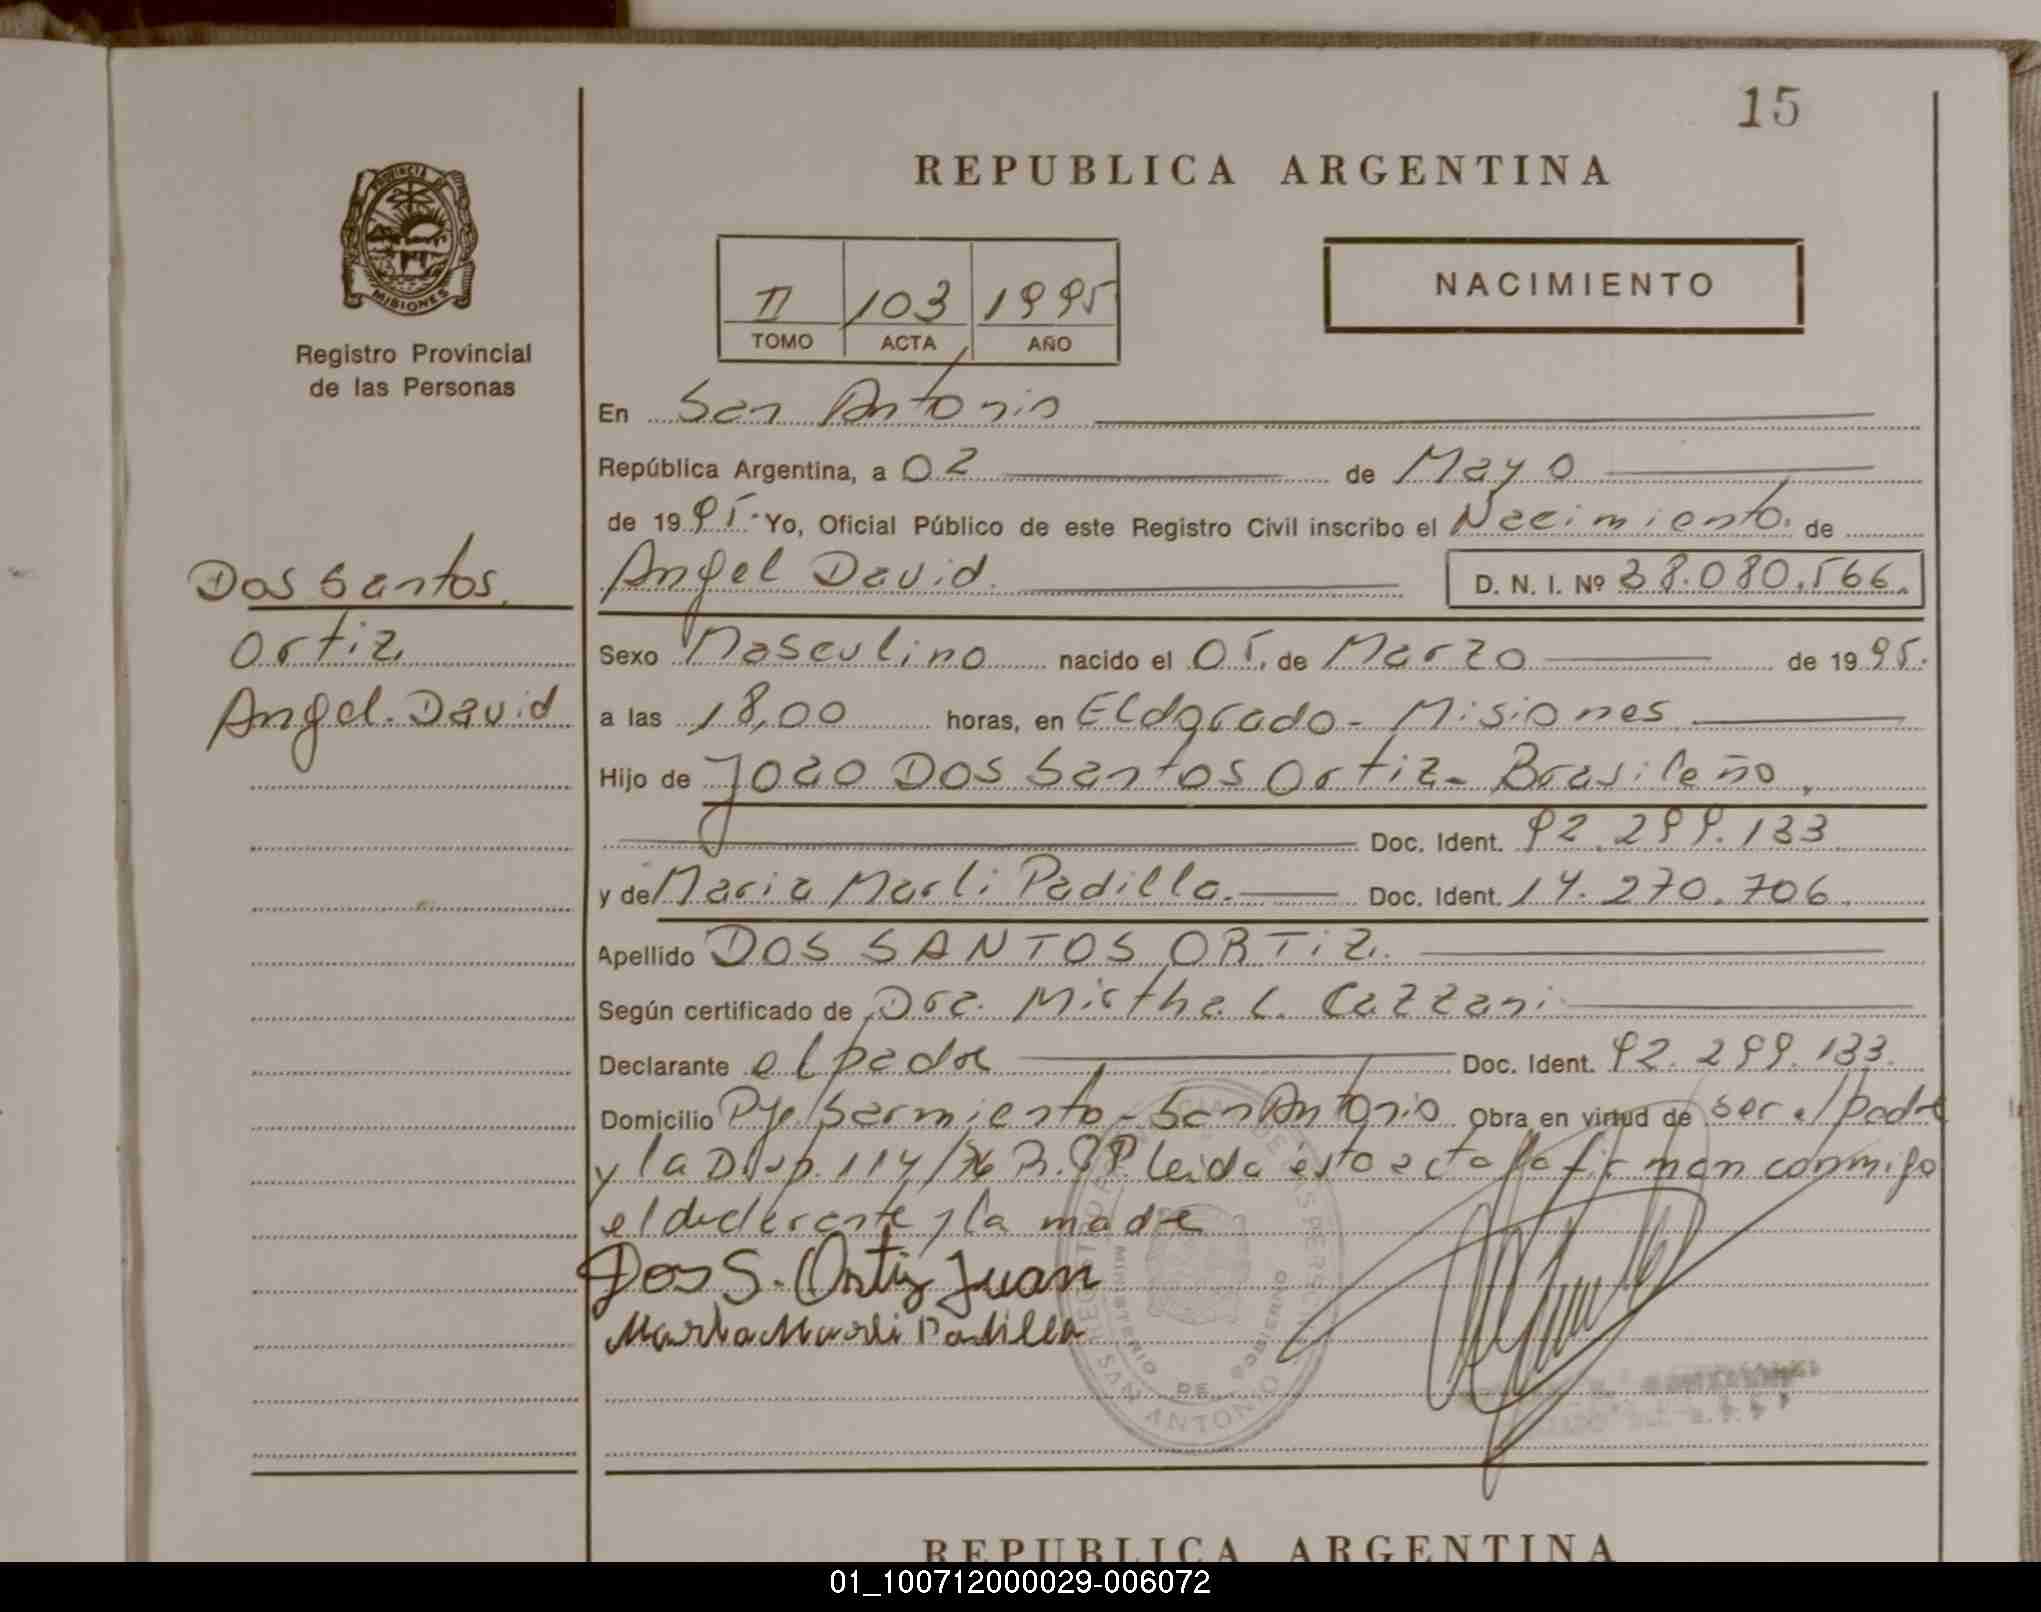 15
REPUBLICA ARGENTINA
PROVINCIA DE
MISIONES
Registro Provincial
de las Personas
II 103 1995
TOMO ACTA AÑO
NACIMIENTO
En San Antonio
República Argentina, a 02 de Mayo
de 1995. Yo, Oficial Público de este Registro Civil inscribo el Nacimiento. de
Dos Santos
Ortiz
Angel David
Angel David. D. N. I. Nº 38.080.566.
Sexo Masculino nacido el 05. de Marzo de 1995.
a las 18,00 horas, en Eldorado - Misiones
Hijo de Joao Dos Santos Ortiz - Brasileño,
Doc. Ident. 92.299.133
y de Maria Marli Padilla. Doc. Ident. 14.270.706.
Apellido DOS SANTOS ORTiZ.
Según certificado de Dra. Mirtha L. Cazzani
Declarante el padre Doc. Ident. 92.299.133.
Domicilio Pje/Sarmiento - San Antonio Obra en virtud de ser el padre
y la Disp. 114/76 Leida esta acta la firman conmigo
el declarante y la madre
Dos S. Ortiz Juan
Maria Marli Padilla
SAN ANTONIO
MINISTERIO DE GOBIERNO
REPUBLICA ARGENTINA
01_100712000029-006072